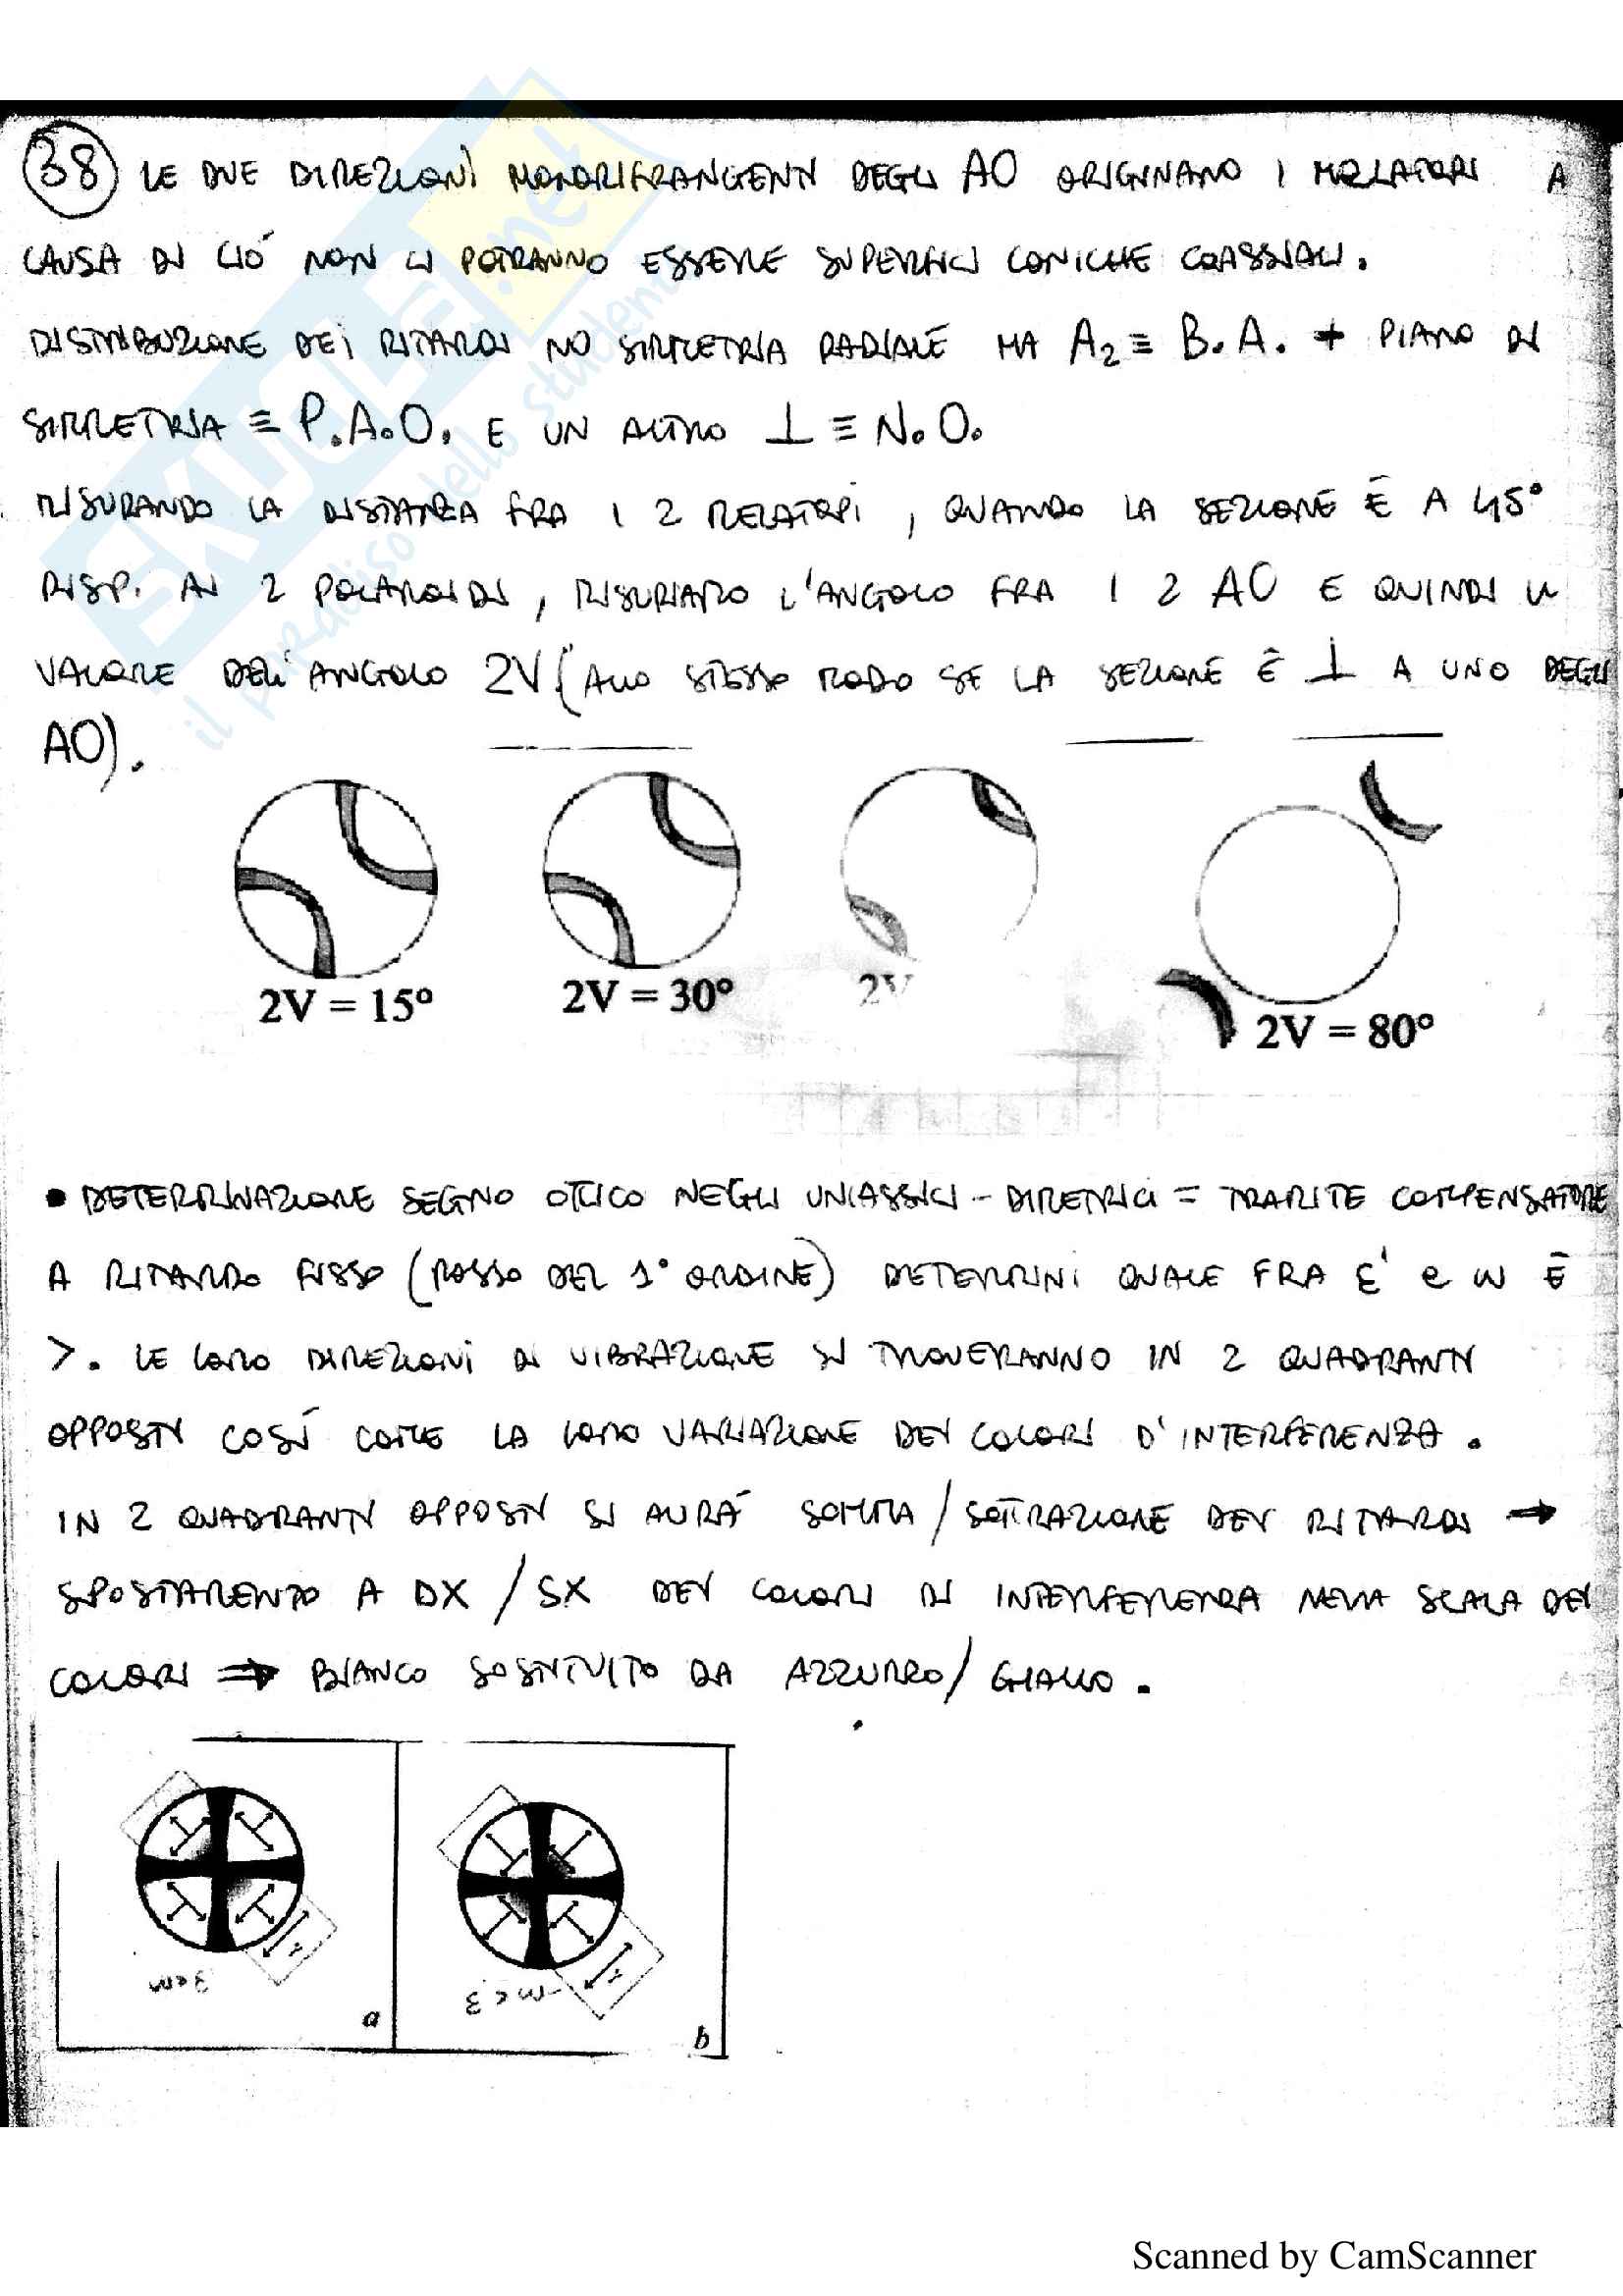 38 LE DUE DIREZIONI MONORIFRANGENTI DEGLI AO ORIGINANO I MELATOPI A
CAUSA DI CIÓ NON CI POTRANNO ESSERE SUPERFICI CONICHE COASSIALI.
DISTRIBUZIONE DEI RITARDI NO SIMMETRIA RADIALE MA A₂ ≡ B.A. + PIANO DI
SIMMETRIA ≡ P.A.O. E UN ALTRO ⊥ ≡ N.O.
MISURANDO LA DISTANZA FRA I 2 MELATOPI, QUANDO LA SEZIONE È A 45°
RISP. AI 2 POLAROIDI, MISURIAMO L'ANGOLO FRA I 2 AO E QUINDI IL
VALORE DELL'ANGOLO 2V (ALLO STESSO MODO SE LA SEZIONE È ⊥ A UNO DEGLI
AO).
2V = 15°
2V = 30°
2V
2V = 80°
• DETERMINAZIONE SEGNO OTTICO NEGLI UNIASSICI - DIMETRICI = TRAMITE COMPENSATORE
A RITARDO FISSO (ROSSO DEL 1° ORDINE) DETERMINI QUALE FRA ε' e ω È
>. LE LORO DIREZIONI DI VIBRAZIONE SI TROVERANNO IN 2 QUADRANTI
OPPOSTI COSÍ COME LA LORO VARIAZIONE DEI COLORI D'INTERFERENZA.
IN 2 QUADRANTI OPPOSTI SI AVRÁ SOMMA / SOTTRAZIONE DEI RITARDI →
SPOSTAMENTO A DX / SX DEI COLORI DI INTERFERENZA NELLA SCALA DEI
COLORI ⇒ BIANCO SOSTITUITO DA AZZURRO / GIALLO.
a
b
SKUOLA.net
il paradiso dello studente
Scanned by CamScanner